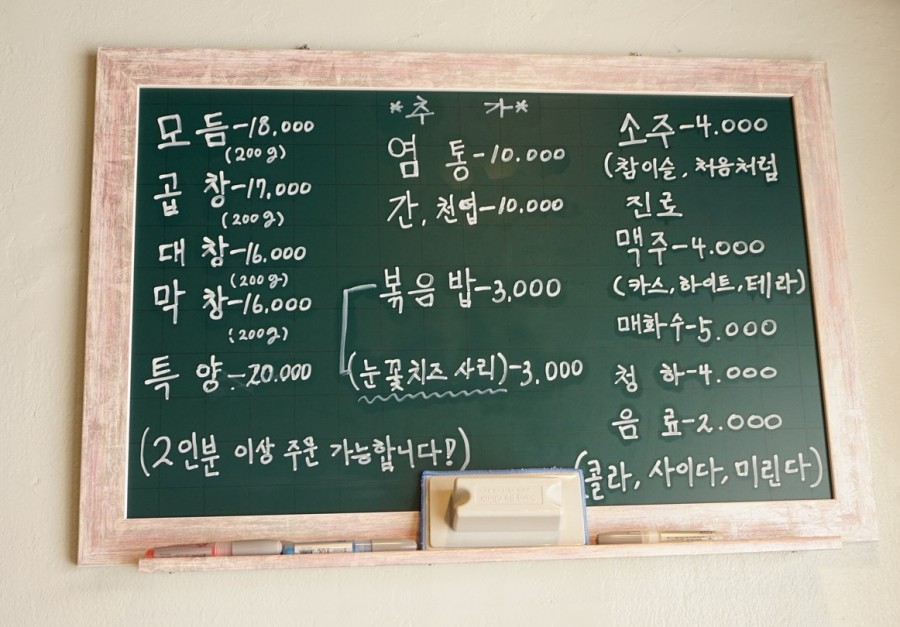 모듬-18,000
(200g)
곱 창-17,000
(200g)
대 창-16.000
(200g)
막 창-16,000
(200g)
특 양-20.000
(2인분 이상 주문 가능합니다!)
*추 가*
염 통-10.000
간, 천엽-10,000
볶음 밥-3,000
(눈꽃치즈 사리)-3,000
소주-4.000
(참이슬, 처음처럼
진로
맥주-4.000
(카스,하이트,테라)
매화수-5.000
청 하-4.000
음 료-2.000
(콜라, 사이다, 미린다)